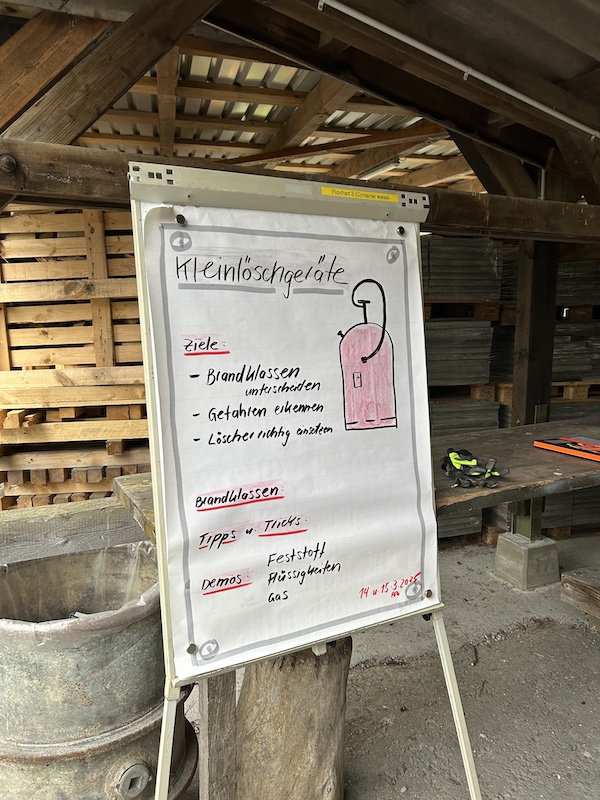 Flipchart 3 (Container weiss)
Kleinlöschgeräte
Ziele:
- Brandklassen
unterscheiden
- Gefahren erkennen
- Löscher richtig einsetzen
Brandklassen:
Tipps u. Tricks:
Demos: Feststoff
Flüssigkeiten
Gas
14 u. 15.3.2025